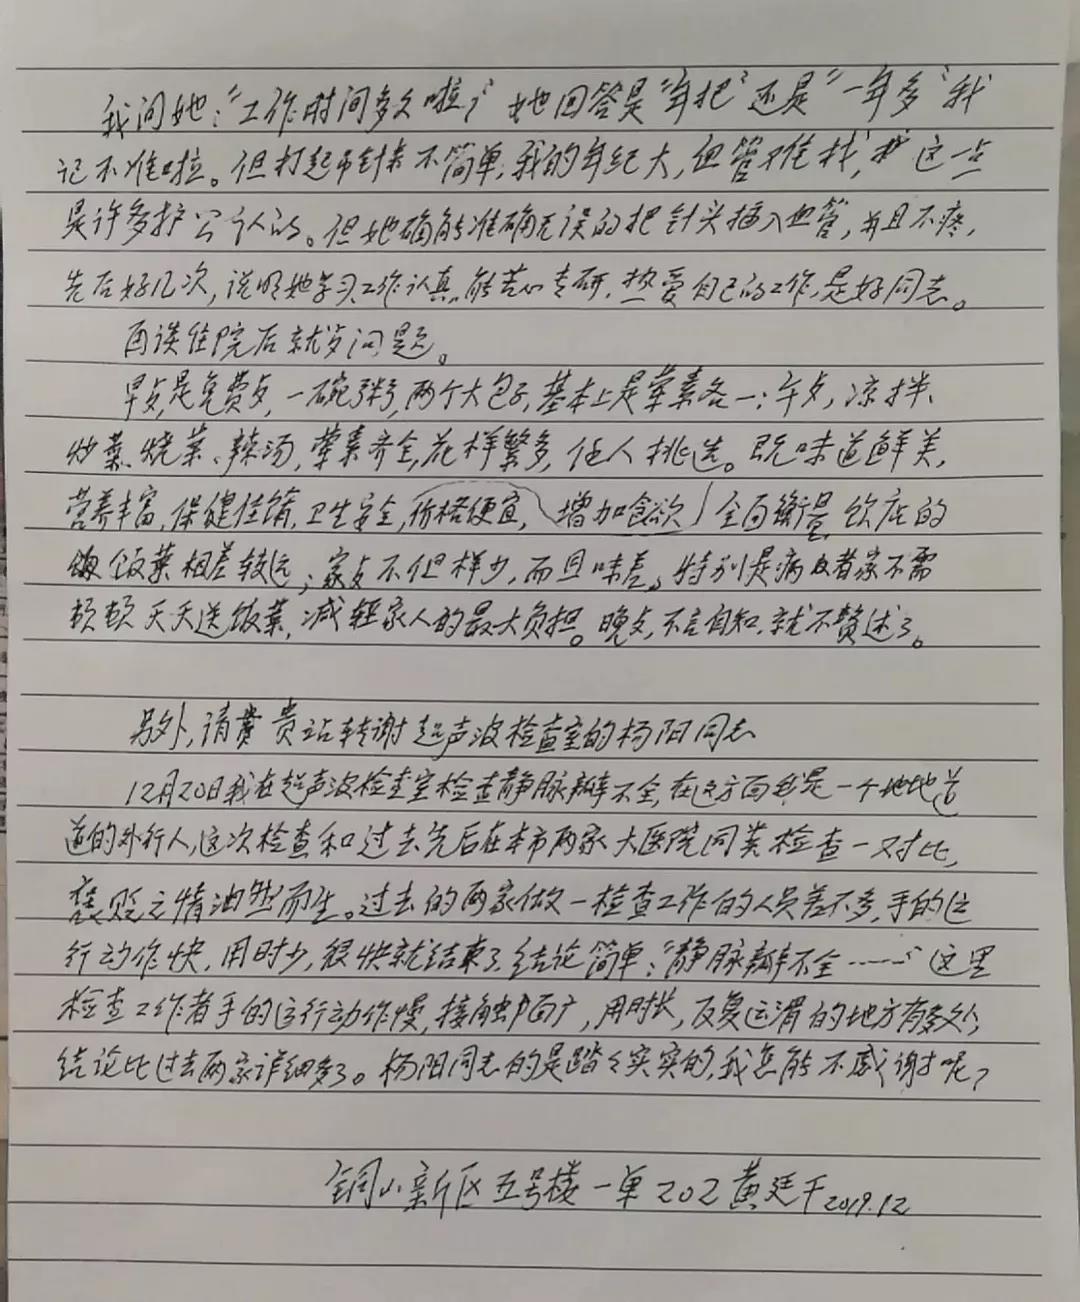 我问她："工作时间多久啦？"她回答是"年把"还是"一年多"我
记不准啦。但打起吊针来不简单，我的年纪大，血管难找，这一点
是许多护公认的。但她确能准确无误的把针头插入血管，并且不疼，
先后好几次，说明她学习、工作认真，能苦心专研，热爱自己的工作，是好同志。
再谈住院后就歺问题。
早歺是免费歺，一碗粥，两个大包子，基本上是荤素各一；午歺，凉拌、
炒菜、烧菜、辣汤，荤素齐全，花样繁多，任人挑选。既味道鲜美，
营养丰富，保健佳肴，卫生安全，价格便宜，增加食欲，全面衡量饮店的
饭菜相差较远；家歺不但样少，而且味差。特别是病患者家不需
顿顿天天送饭菜，减轻家人的最大负担。晚歺，不言自知，就不赘述了。
另外，请贵站转谢超声波检查室的杨阳同志
12月20日我在超声波检查室检查静脉瓣不全，在这方面我是一个地地道
道的外行人，这次检查和过去先后在本市两家大医院同类检查一对比，
褒贬之情油然而生。过去的两家做一检查工作的人员差不多，手的运
行动作快，用时少，很快就结束了，结论简单："静脉瓣不全……"这里
检查工作者手的运行动作慢，接触面广，用时长，反复运滑的地方有多处，
结论比过去两家详细多了。杨阳同志的是踏々实实的，我怎能不感谢呢？
铜山新区五号楼一单202 黄廷干 2019.12